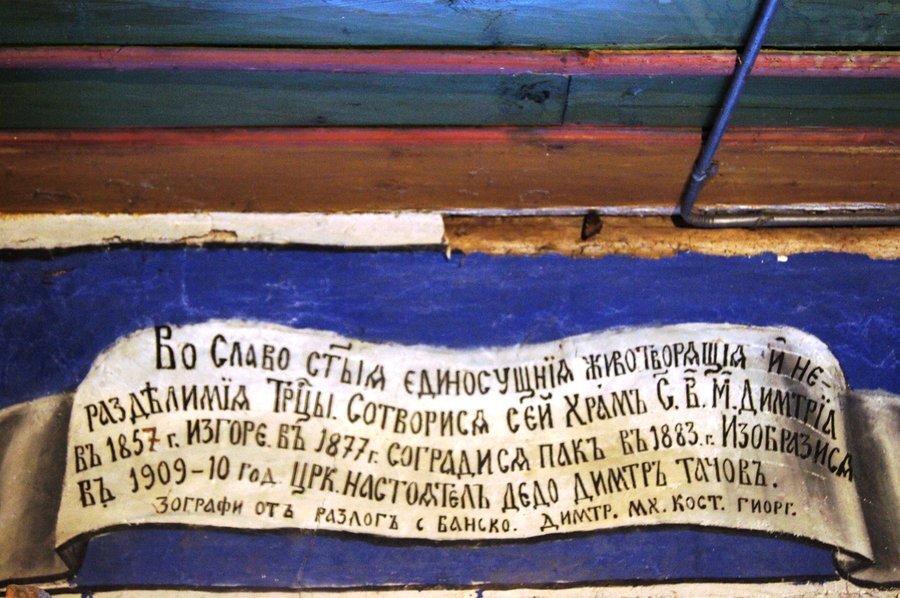 Во Славо ст҃ыѧ единосущнїѧ животворѧщїѧ и не-
раздѣлимїѧ Трⷪ҇цы. Сотворисѧ сей Храмъ С. В. М. Димитрїѧ
въ 1857 г. изгоре. въ 1877 г. соградисѧ пакъ въ 1883. г. Изобразисѧ
въ 1909-10 год. црк. настоѧтель дедо Димитръ Тачовъ.
Зографи отъ разлогъ с банско. Димтр. мх. кост. гиорг.